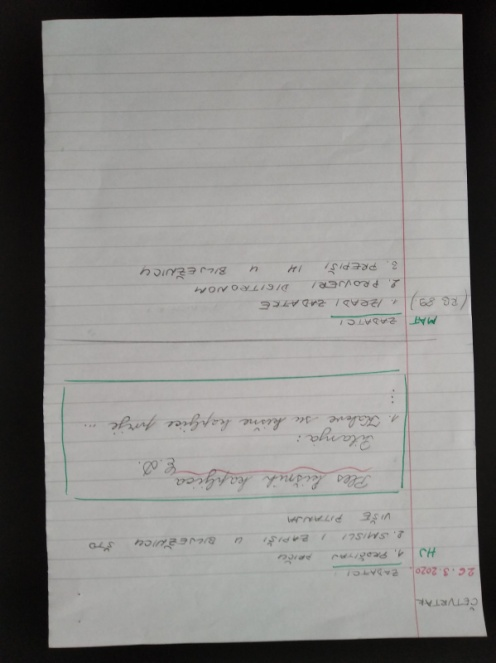 ČETVRTAK
26.3.2020
HJ
ZADATCI
1. PROČITAJ PRIČU
2. SMISLI I ZAPIŠI U BILJEŽNICU ŠTO
VIŠE PITANJA
Ples kišnih kapljica
E. P.
Pitanja:
1. Kakve su kišne kapljice prije ...
⋮
MAT
(RB 89)
ZADATCI
1. IZRADI ZADATKE
2. PROVJERI DIGITRONOM
3. PREPIŠI IH U BILJEŽNICU